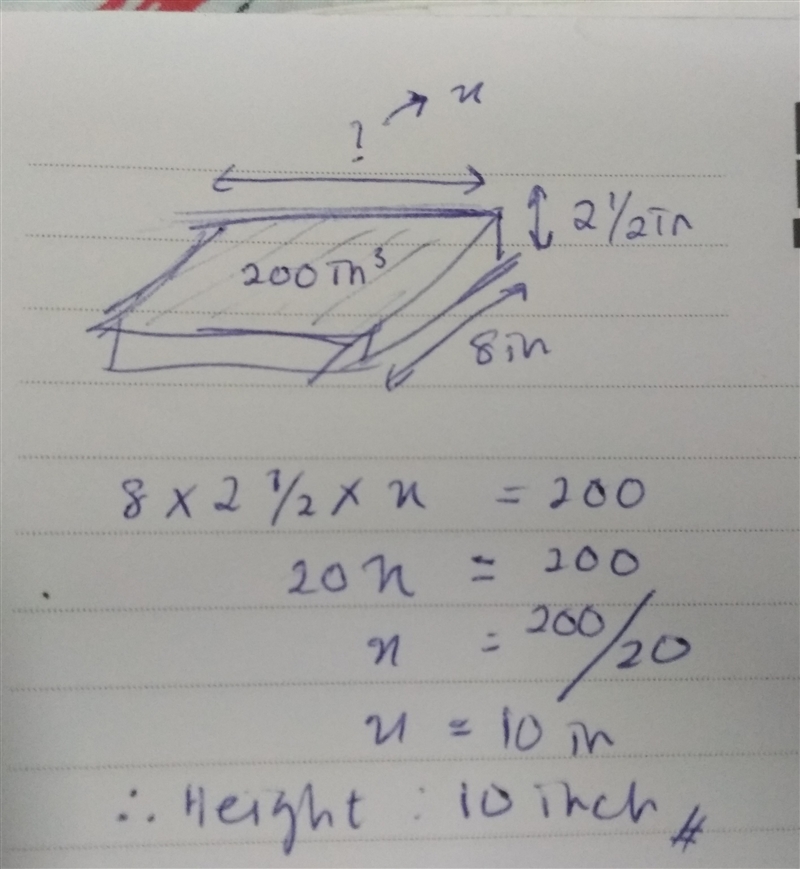 ? → x
2 1/2 in
200 in³
8 in
8 × 2 1/2 × x = 200
20x = 200
x = 200/20
x = 10 in
∴ Height : 10 inch #